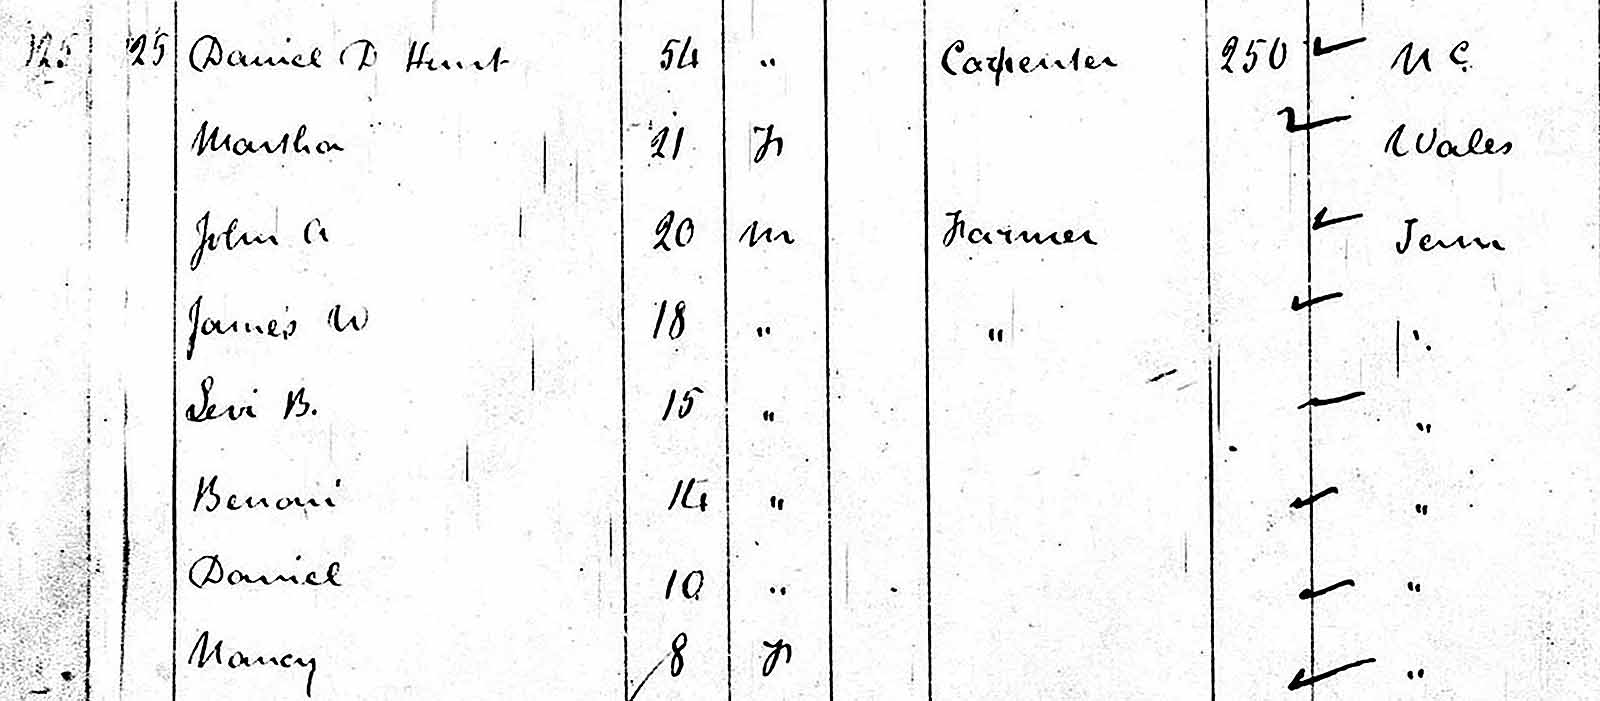 125 125 Daniel D Hunt 54 " Carpenter 250 N C
Martha 21 F Wales
John A 20 M Farmer Tenn
James W 18 " " "
Levi B. 15 " "
Benoni 14 " "
Daniel 10 " "
Nancy 8 F "